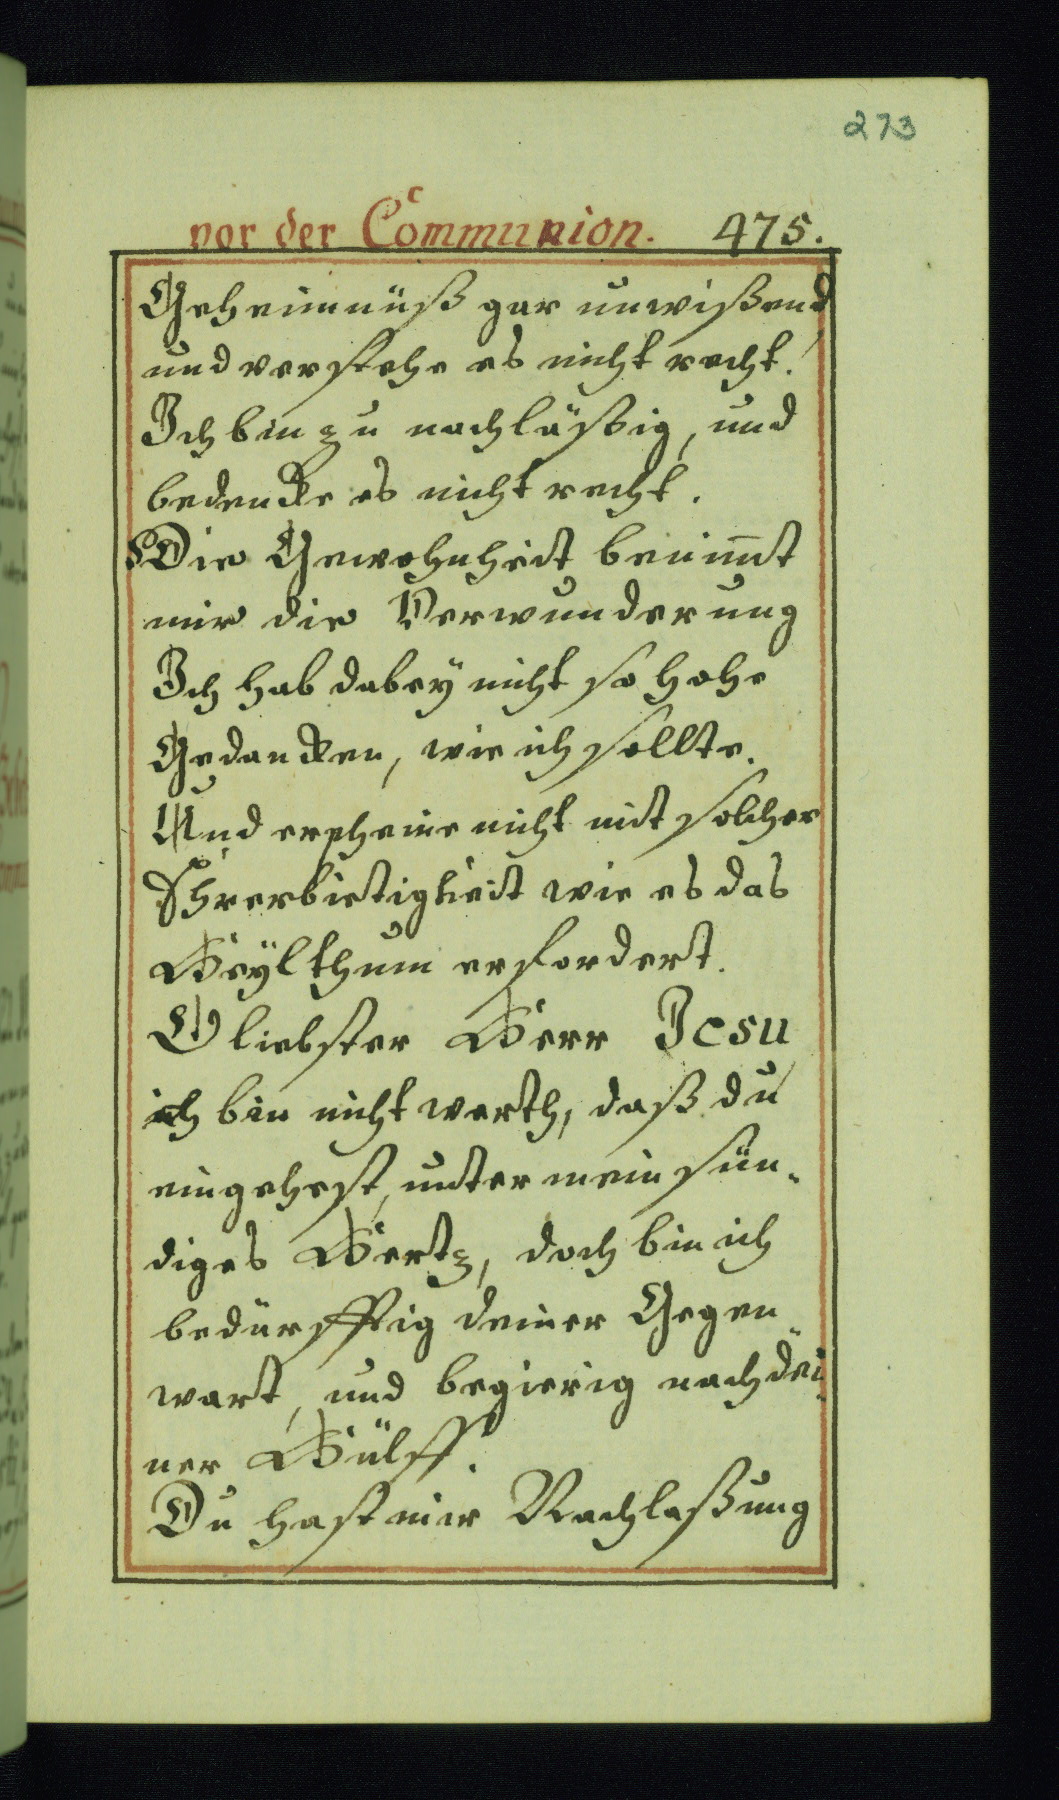 273
vor der Communion. 475.
Geheimnüß gar unwißend
und verstehe es nicht recht.
Ich bin zu nachläßig, und
bedencke es nicht recht.
Die Gewohnheit benim̅t
mir die Verwunderung
Ich hab dabey nicht so hohe
Gedancken, wie ich sollte.
Und erscheine nicht mit solcher
Ehrerbietigkeit wie es das
Heÿlthum erfordert.
O liebster Herr Jesu
ich bin nicht werth, daß du
eingehest, unter mein sün-
diges Hertz, doch bin ich
bedürfftig deiner Gegen
wart, und begierig nach dei-
ner Hülff.
Du hast mir Nachlaßung